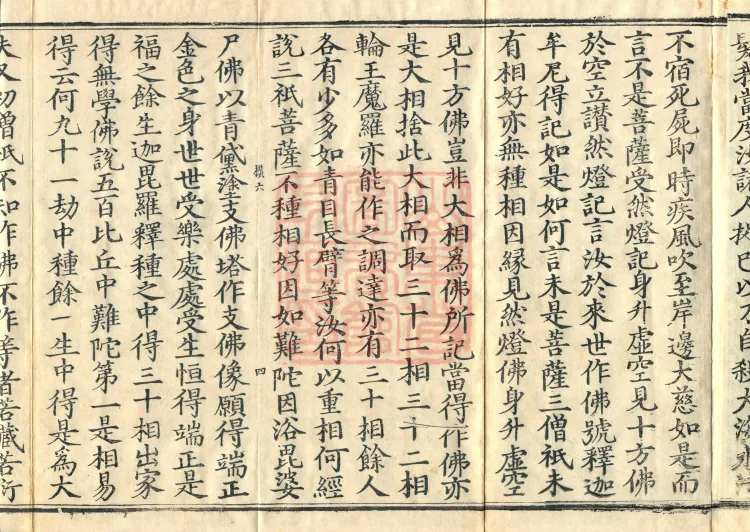 不宿死屍即時疾風吹至岸邊大慈如是而
言不是菩薩受然燈記身升虛空見十方佛
於空立讃然燈記言汝於來世作佛號釋迦
牟尼得記如是如何言未是菩薩三僧祇未
有相好亦無種相因縁見然燈佛身升虛空
見十方佛豈非大相爲佛所記當得作佛亦
是大相捨此大相而取三十二相三十二相
輪王魔羅亦能作之調達亦有三十相餘人
各有少多如青目長臂等汝何以重相何經
說三祇菩薩不種相好因如難陀因浴毘婆
尸佛以青黛塗支佛塔作支佛像願得端正
橫六 四
金色之身世世受樂處處受生恒得端正是
福之餘生迦毘羅釋種之中得三十相出家
得無學佛說五百比丘中難陀第一是相易
得云何九十一劫中種餘一生中得是爲大